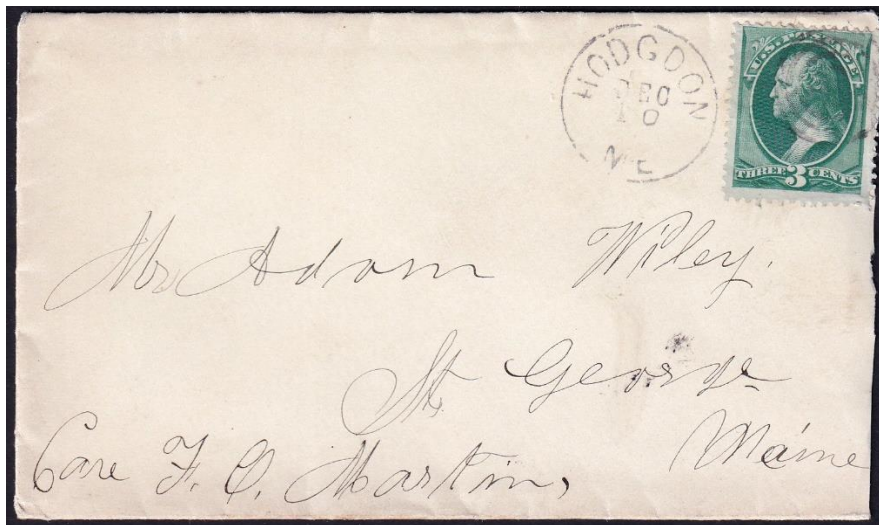 HODGDON
DEC
10
ME
U.S. POSTAGE
THREE 3 CENTS
Mr Adam Wiley.
St. George
Maine
Care F. O. Martin,